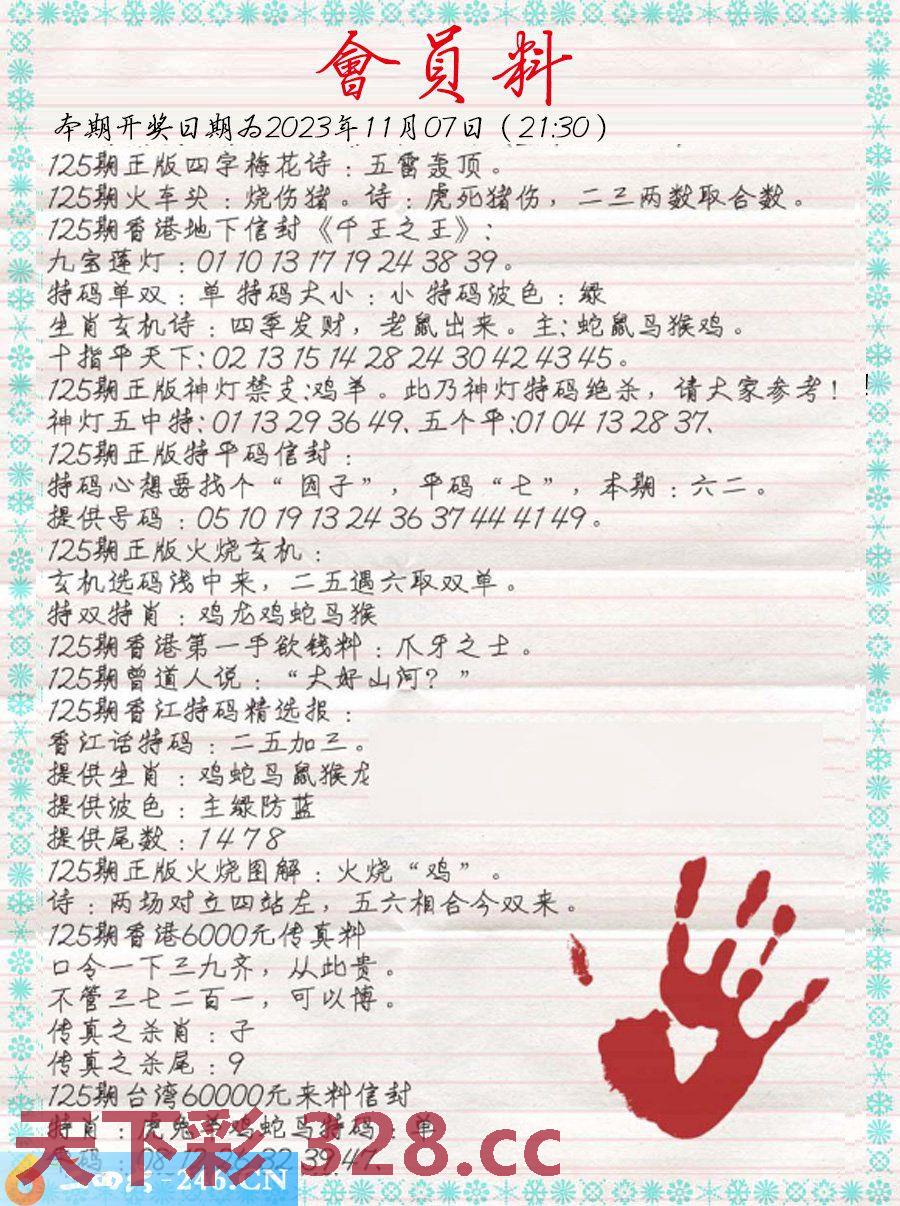 會員料
本期开奖日期为2023年11月07日（21:30）
125期正版四字梅花诗：五雷轰顶。
125期火车头：烧伤猪。诗：虎死猪伤，二三两数取合数。
125期香港地下信封《千王之王》：
九宝莲灯：01 10 13 17 19 24 38 39。
特码单双：单 特码大小：小 特码波色：绿
生肖玄机诗：四季发财，老鼠出来。主：蛇鼠马猴鸡。
十指平天下：02 13 15 14 28 24 30 42 43 45。
125期正版神灯禁支:鸡羊。此乃神灯特码绝杀，请大家参考！!
神灯五中特：01 13 29 36 49、五个平:01 04 13 28 37、
125期正版特平码信封：
特码心想要找个“因子”，平码“七”，本期：六二。
提供号码：05 10 19 13 24 36 37 44 41 49。
125期正版火烧玄机：
玄机选码浅中来，二五遇六取双单。
特双特肖：鸡龙鸡蛇马猴
125期香港第一手欲钱料：爪牙之士。
125期曾道人说：“大好山河？”
125期香江特码精选报：
香江话特码：二五加三。
提供生肖：鸡蛇马鼠猴龙
提供波色：主绿防蓝
提供尾数：1 4 7 8
125期正版火烧图解：火烧“鸡”。
诗：两场对立四站左，五六相合今双来。
125期香港6000元传真料
口令一下三九齐，从此贵。
不管三七二百一，可以博。
传真之杀肖：子
传真之杀尾：9
125期台湾60000元来料信封
特肖：虎兔羊鸡蛇马特码：单
天下彩 328.cc
32 39 47、
-246.CN